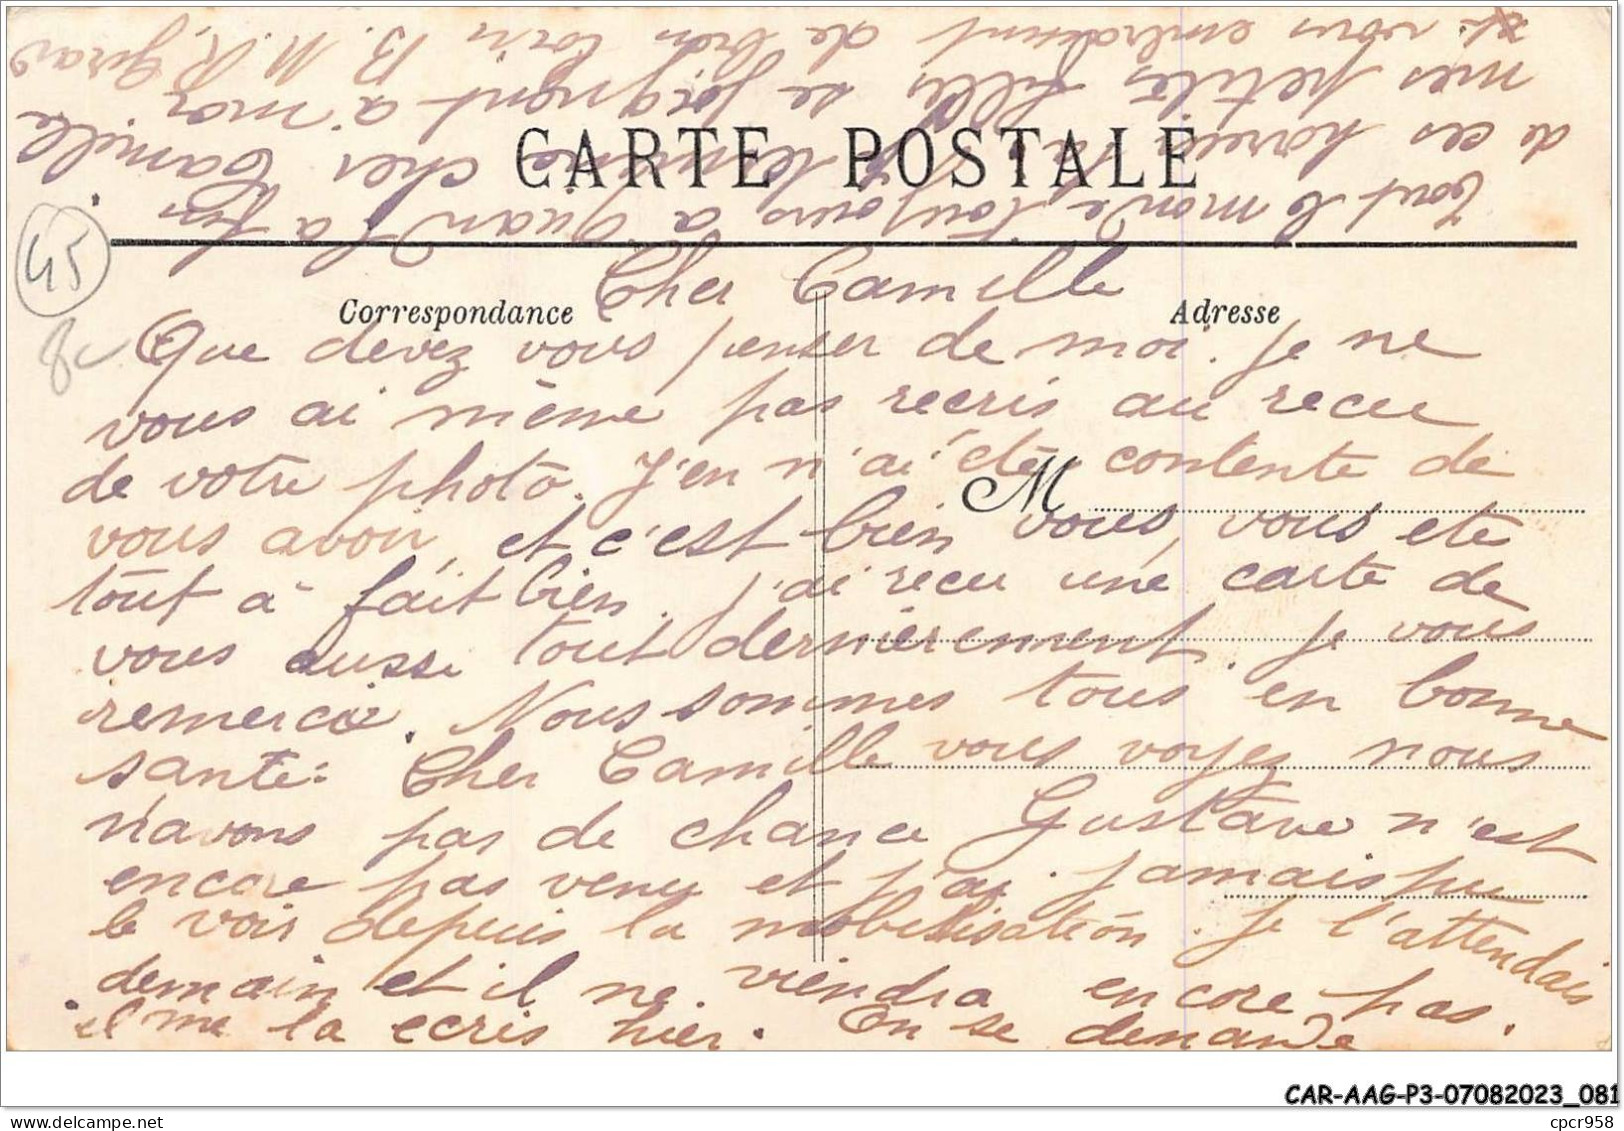 CARTE POSTALE
Correspondance
Adresse
M
45
Cher Camille
Que devez vous penser de moi. Je ne
vous ai même pas recris au recu
de votre photo. J'en n'ai étè contente de
vous avoir, et c'est bien vous, vous ete
tout a fait bien. J'ai recu une carte de
vous aussi tout dernièrement. Je vous
remercie. Nous sommes tous en bonne
santé: Cher Camille vous voyez nous
n'avons pas de chance Gustave n'est
encore pas venu et j'ai jamais pu
le voir depuis la mobilisation. Je l'attendais
demain et il ne viendra encore pas.
il me la ecris hier. On se demande
tout le monde toujours a Quand la fin
de ces horeurs la terminé cher Camille
mes petites filles se joignent à moi
et vous embrassent de bien loin B. M. R. Giraud
CAR-AAG-P3-07082023_081
cpcr958